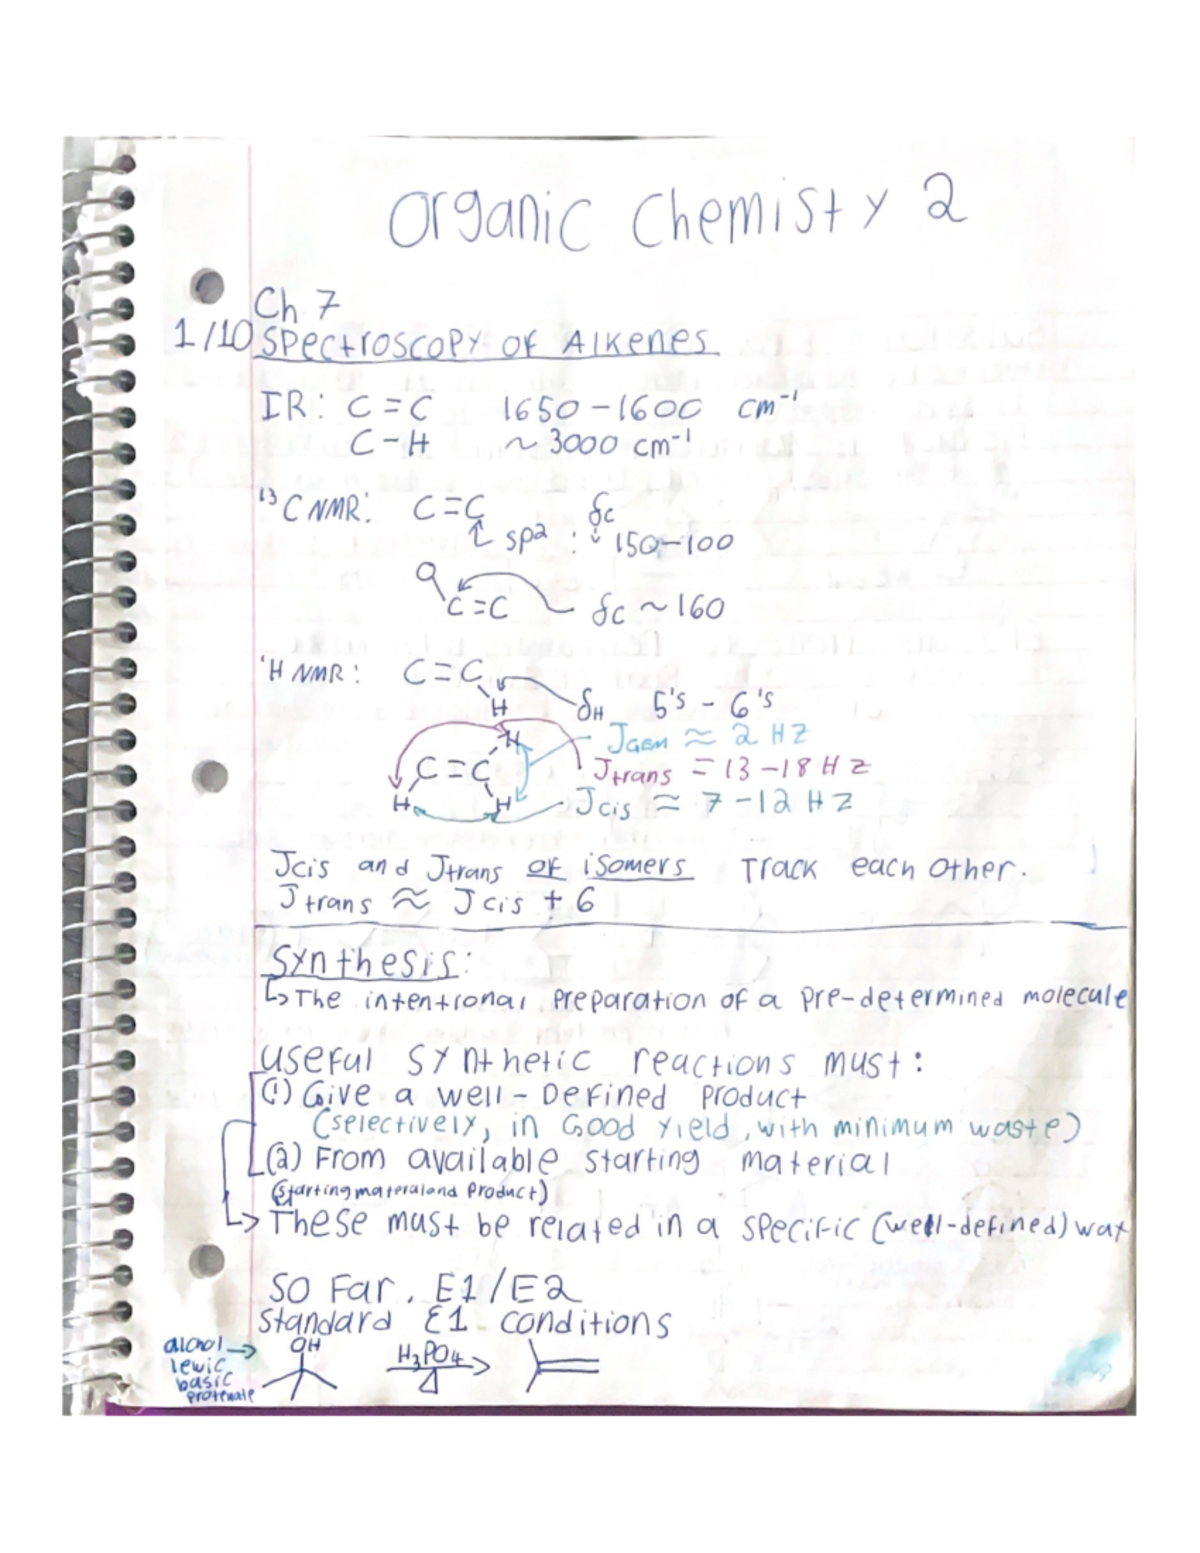 Organic Chemisty 2
Ch 7
1/10 Spectroscopy of Alkenes
IR: C=C 1650-1600 cm⁻¹
C-H ~3000 cm⁻¹
¹³C NMR: C=C δc
sp2 : 150-100
O
C=C δc ~160
¹H NMR: C=C
H δH 5's - 6's
H Jgem ≈ 2 Hz
C=C Jtrans = 13-18 Hz
H H Jcis ≈ 7-12 Hz
Jcis and Jtrans of isomers Track each other.
Jtrans ≈ Jcis + 6
Synthesis:
↳The intentional preparation of a pre-determined molecule
Useful synthetic reactions must:
(1) Give a well-Defined product
(selectively, in Good yield, with minimum waste)
(2) From available starting material
(starting materaland product)
↳ These must be related in a specific (well-defined) way
So Far, E1/E2
Standard E1 conditions
alcool → OH H₃PO₄
lewic Δ
basic
protenate